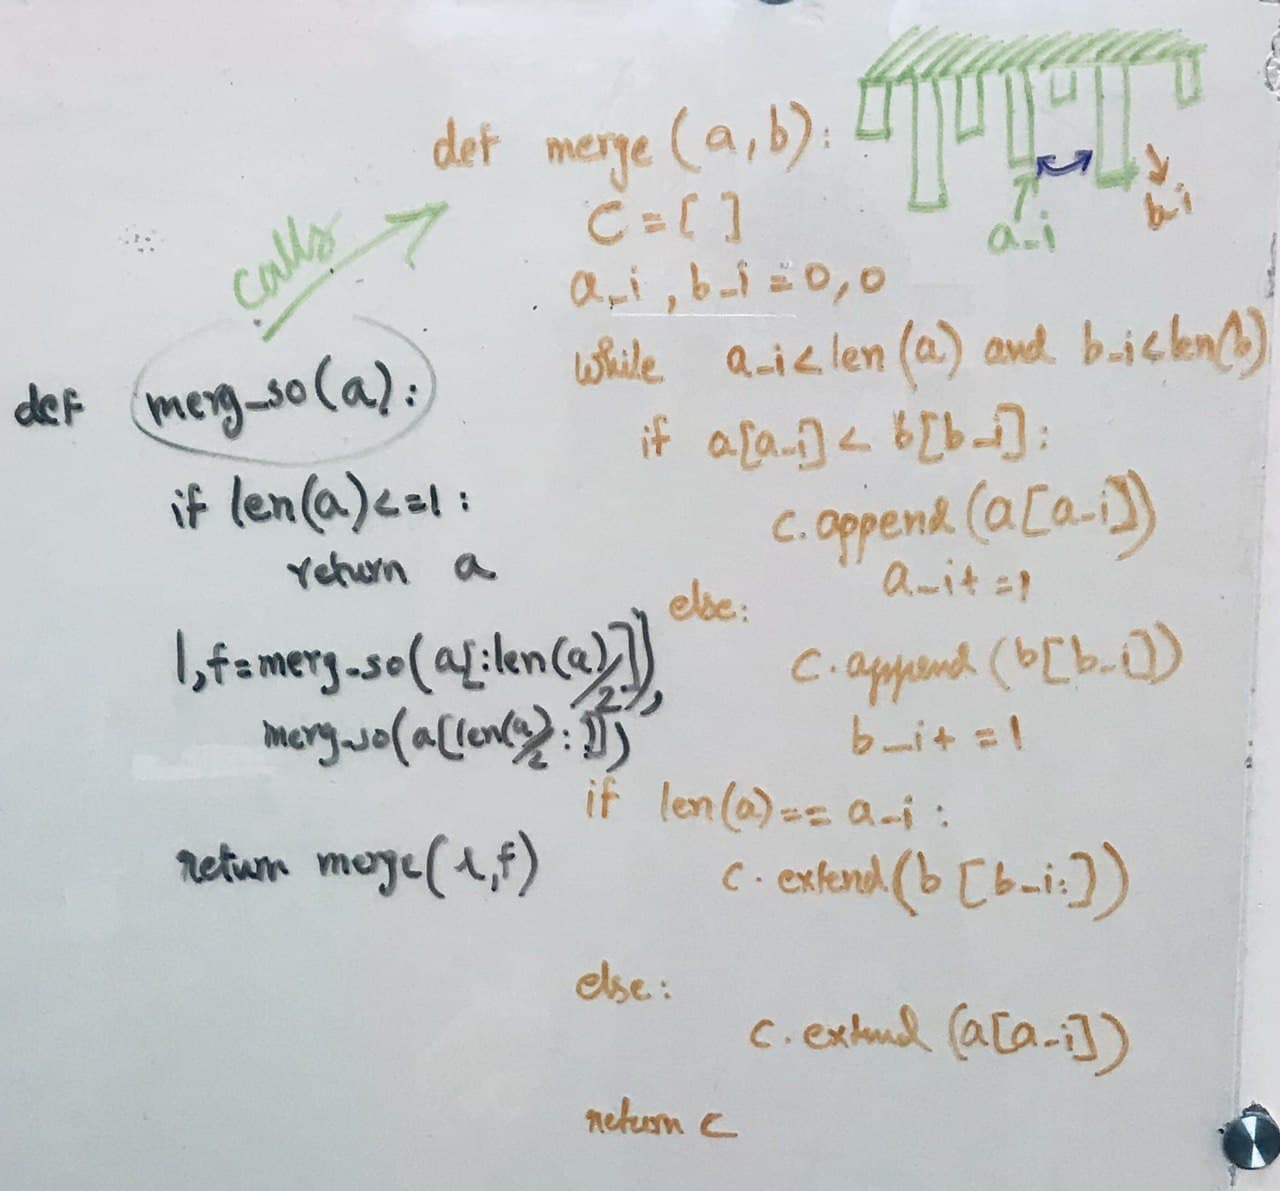 def merge(a,b):
C=[ ]
a_i, b_i = 0,0
while a_i<len(a) and b_i<len(b)
if a[a_i] < b[b_i]:
c.append(a[a_i])
a_i+=1
else:
c.append(b[b_i])
b_i+=1
if len(a)==a_i:
c.extend(b[b_i:])
else:
c.extend(a[a_i])
return c
a_i
b_i
calls
def merg_so(a):
if len(a)<=1:
return a
l,f=merg_so(a[:len(a)//2]),
merg_so(a[len(a)//2:])
return merge(l,f)